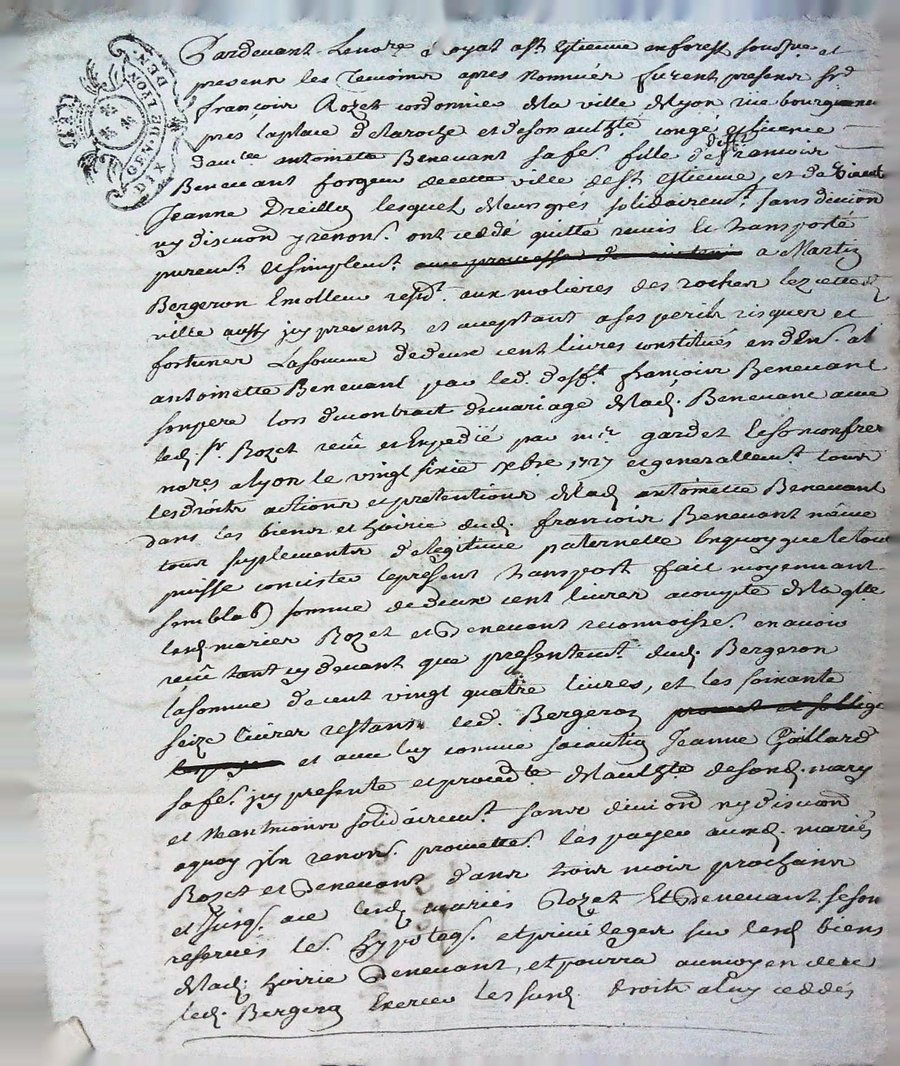 GEN. DE LYON
DIX DEN.
Pardevant Le no.re royal a St Estienne en forest soussigné et
presens les temoins apres nommés furent presens s.r
françois Rozet cordonnier de la ville de Lyon rue bourgneuf
pres la place de la roche et de son autthé congé et licence
antoinette Benevant sa fe. fille de deff.t francois
Benevant forgeur de cette ville de St Estienne, et de vivante
Jeanne Dreille lesquels de leurs gres solidairem.t sans division
ny discution y renons. ont cedde quitté remis et transporté
purem.t et simplem.t a Martin
Bergeron Emolleur resid.t aux molieres des rochés lez cette
ville aussy icy present et acceptant a ses perils risques et
fortunes La somme de deux cent livres constitués en d. a lad.
antoinette Benevant par led. deff.t françois Benevant
son pere lors du contract de mariage de lad. Benevant avec
led. Sr. Rozet receu et Expedié par m.e gardet et son confrere
no.res a lyon le vingt sixie. xbre 1727 et generallem.t tous
les droits actions et pretentions de lad. antoinette Benevant
dans les biens et hoirie dud. francois Benevant même
tous suplements de legitime paternelle en quoy que le tout
puisse concister le present transport fait moyennant
semblab. somme de deux cent livres a compte de laq.lle
lesd. mariés Rozet et Benevant reconnoisse. en avoir
receu tant cy devant que presentem.t dud. Bergeron
la somme de cent vingt quatre livres, et les soixante
seize livres restans led. Bergeron promet et s'oblige
et avec luy comme sa caution Jeanne Gallard
sa fe. icy presente et proced.te de l'autthé de sond. mary
et neantmoins solidairem.t sans division ny discution
a quoy ils renons. promettes. les payer auxd. mariés
Rozet et Benevant dans trois mois prochains
et jusq. a ce lesd. mariés Rozet et Benevant se son
reservés les hypoteq. et privileges sur lesd. biens
de lad. hoirie Benevant, et pourra au moyen de ce
led. Bergeron Exercer les susd. droits a luy ceddés